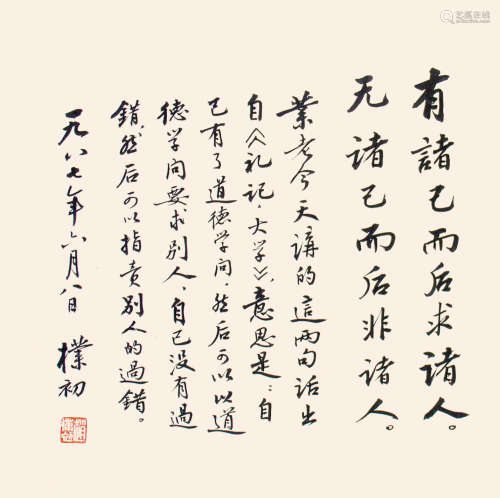 艺狐在线
有諸己而后求诸人。
无诸己而后非诸人。
葉老今天講的這两句话出
自《礼记·大学》,意思是:自
己有了道德学问,然后可以以道
德学问要求别人,自己没有過
错,然后可以指责别人的過错。
一九八七年六月八日 樸初